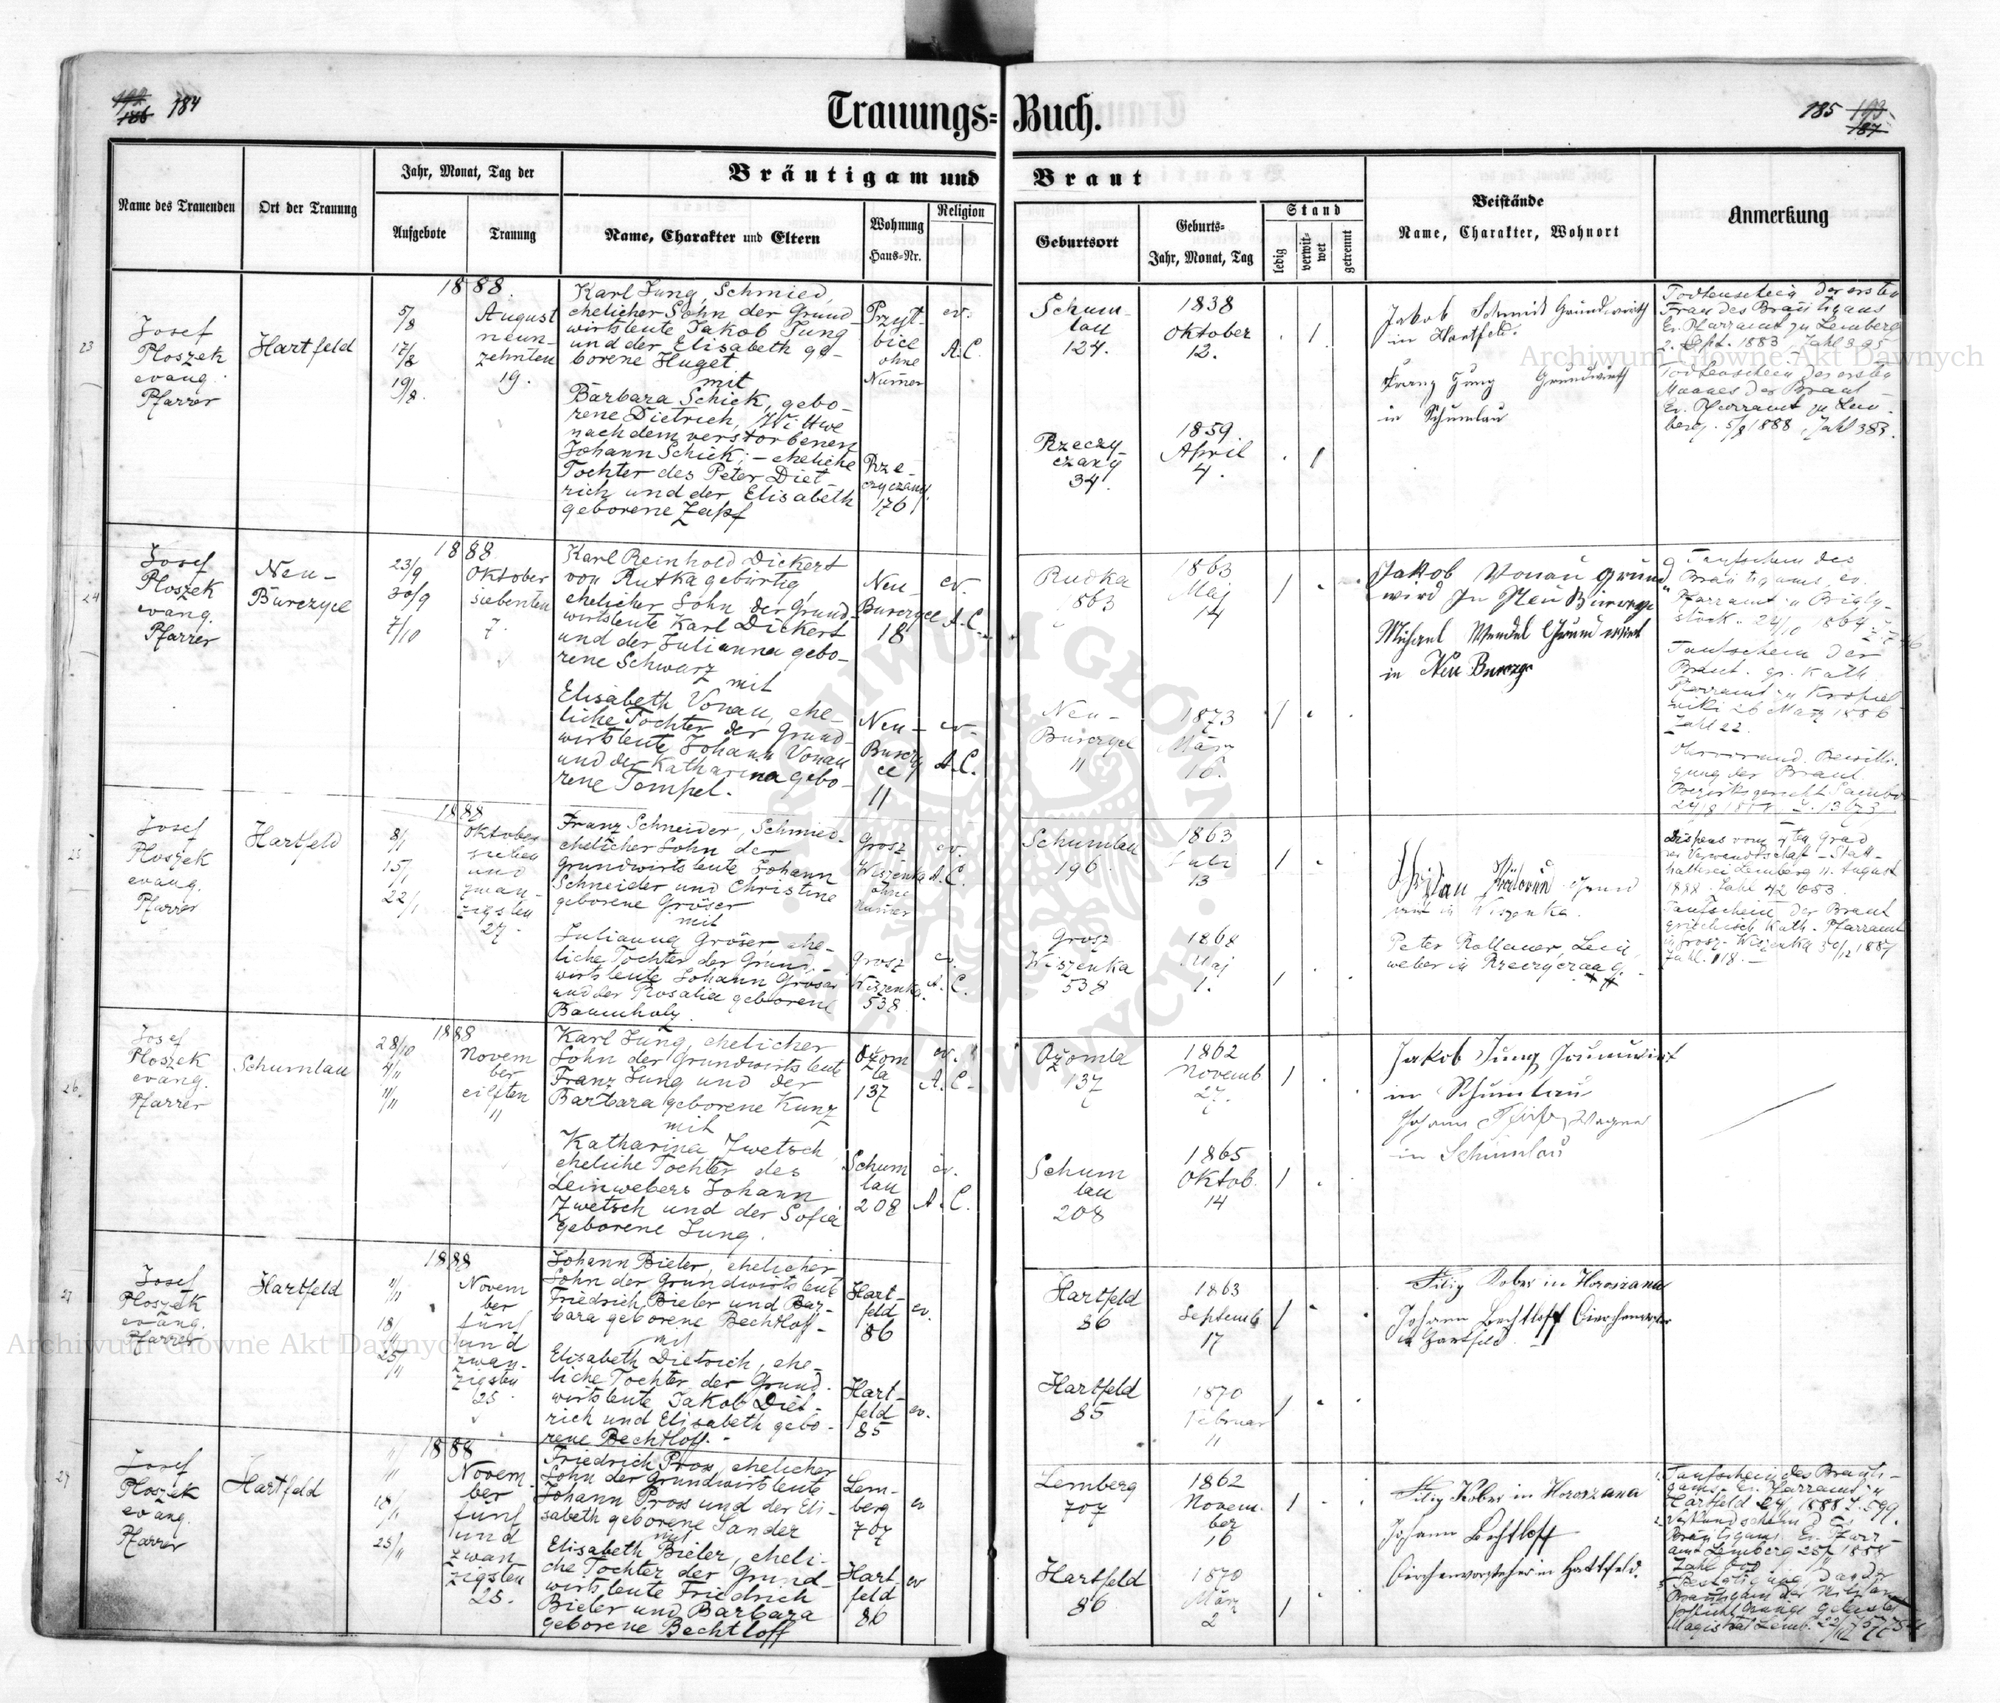 192
186
184
Trauungs-Buch.
185
193
187
Name des Trauenden
Ort der Trauung
Jahr, Monat, Tag der
Aufgebote
Trauung
Bräutigam und Braut
Name, Charakter und Eltern
Wohnung
Haus-Nr.
Religion
Geburtsort
Geburts-
Jahr, Monat, Tag
Stand
ledig
verwit-
wet
getrennt
Beistände
Name, Charakter, Wohnort
Anmerkung
23
Josef
Ploszek
evang.
Pfarrer
Hartfeld
5/8
12/8
19/8.
1888.
August
neun-
zehnten
19.
Karl Jung, Schmied,
ehelicher Sohn der Grund-
wirtsleute Jakob Jung
und der Elisabeth ge-
borene Huget.
mit
Barbara Schick, gebo-
rene Dietrich, Wittwe
nach dem verstorbenen
Johann Schick; - eheliche
Tochter des Peter Diet-
rich und der Elisabeth
geborene Zapf
Przyl-
bice
ohne
Numer
Rze-
czyczany.
176
ev.
A.C.
Schum-
lau
124.
1838
Oktober
12.
Rzeczy-
czany
34.
1859
April
4.
Jakob Schmidt Grundwirth
in Hartfeld.
Franz Jung Grundwirth
in Schumlau
Todtenschein der ersten
Frau des Bräutigams
Ev. Pfarramt zu Lemberg
2. Sept. 1883, Zahl 395
Todtenschein des ersten
Mannes der Braut
Ev. Pfarramt zu Lem-
berg. 5/8 1888, Zahl 383.
24
Josef
Ploszek
evang.
Pfarrer
Neu-
Burczyce
23/9
30/9
7/10
1888
Oktober
siebenten
7.
Karl Reinhold Dickert
von Rutka gebürtig,
ehelicher Sohn der Grund-
wirtsleute Karl Dickert
und der Julianna gebo-
rene Schwarz
mit
Elisabeth Vonau, ehe-
liche Tochter der Grund-
wirtsleute Johann Vonau
und der Katharina gebo-
rene Tompel.
Neu-
Burczyce
18
ev.
A.C.
Neu-
Burczy
ce
11
ev.
A.C.
Rudka
1863
Maj
14
Neu-
Burczyce
11
1873
März
16.
Jakob Vonau Grund
wird In Neu Burczyce
Michael Wendel Grund wirt
in Neu Burczyc
Taufschein des
Bräutigams, ev.
Taufschein der
Braut. gr. Kath.
26 März 1886
Zahl 22.
gung der Braut.
25
Josef
Ploszek
evang.
Pfarrer
Hartfeld
1888
Oktober
sieben
und
zwan-
zigsten
27.
Franz Schneider, Schmied.
ehelicher Sohn der
Grundwirtsleute Johann
Schneider und Christine
geborene Gröser
mit
Julianna Gröser, ehe-
liche Tochter der Grund-
wirtsleute Johann Gröser
und der Rosalia geborene
Baumholz.
Grosz
Wiszenka
ohne
Numer
ev.
A.C.
Grosz
Wiszenka.
538
ev.
A.C.
Schumlau
196
1863
13
Grosz
Wiszenka
538
1868
Maj
1.
in Wiszenka.
Peter Rollauer, Lein
weber in Rzeczyczany.
Dispens vom
der Verwandtschaft - Statt-
halterei Lemberg 11. August
1888. Zahl 42 653.
Taufschein der Braut
griechisch Kath. Pfarramt
in Grosz- Wiszenka 30/12 1887
Zahl 118.
26
Josef
Ploszek
evang.
Pfarrer
Schumlau
28/10
4/11
11/11
1888
Novem
ber
eilften
11
Karl Jung, ehelicher
Sohn der Grundwirtsleute
Franz Jung und der
Barbara geborene Kunz
mit
Katharina Zwetsch
eheliche Tochter des
Leinwebers Johann
Zwetsch und der Sofia
geborene Jung.
Ożom
la
137
ev.
A.C.
Schum
lau
208
ev.
A.C.
Ożomla
137
1862
Novemb
27.
Schum
lau
208
1865
Oktob.
14
Jakob Jung Grundwirt
in Schumlau
Johann Wagner
in Schumlau
27
Josef
Ploszek
evang.
Pfarrer
Hartfeld
11/11
18/11
25/11
1888
Novem
ber
fünf
und
zwan-
zigsten
25.
Johann Bieler, ehelicher
Sohn der Grundwirtsleute
Friedrich Bieler und Bar-
bara geborene Bechtloff-
mit
Elisabeth Dietrich, ehe-
liche Tochter der Grund-
wirtsleute Jakob Diet-
rich und Elisabeth gebo-
rene Bechtloff.-
Hart-
feld
86
ev.
Hart-
feld
85
ev.
Hartfeld
86
1863
Septemb
17
Hartfeld
85
1870
Februar
11
Filip Kober in Horozana
Johann Bechtloff Circhenvorsteher
in Hartfeld.
Josef
Ploszek
evang.
Pfarrer
Hartfeld
11/11
18/11
25/11
1888
Novem-
ber
fünf
und
zwan
zigsten
25.
Friedrich Pross, ehelicher
Sohn der Grundwirtsleute
Johann Pross und der Eli-
sabeth geborene Sander
mit
Elisabeth Bieler, eheli-
che Tochter der Grund-
wirtsleute Friedrich
Bieler und Barbara
geborene Bechtloff
Lem-
berg
707
ev
Hart-
feld
86
ev
Lemberg
707
1862
Novem-
ber
16
Hartfeld
86
1870
März
2
Filip Kober in Horozana
Johann Bechtloff
Circhenvorsteher in Hartfeld.
Taufschein des Bräuti-
gams- Ev. Pfarramt zu
Hartfeld
Bräutigams- Ev. Pfarr-
amt Lemberg
Archiwum Główne Akt Dawnych
Archiwum Główne Akt Dawnych
ARCHIWUM GŁÓWNE AKT DAWNYCH